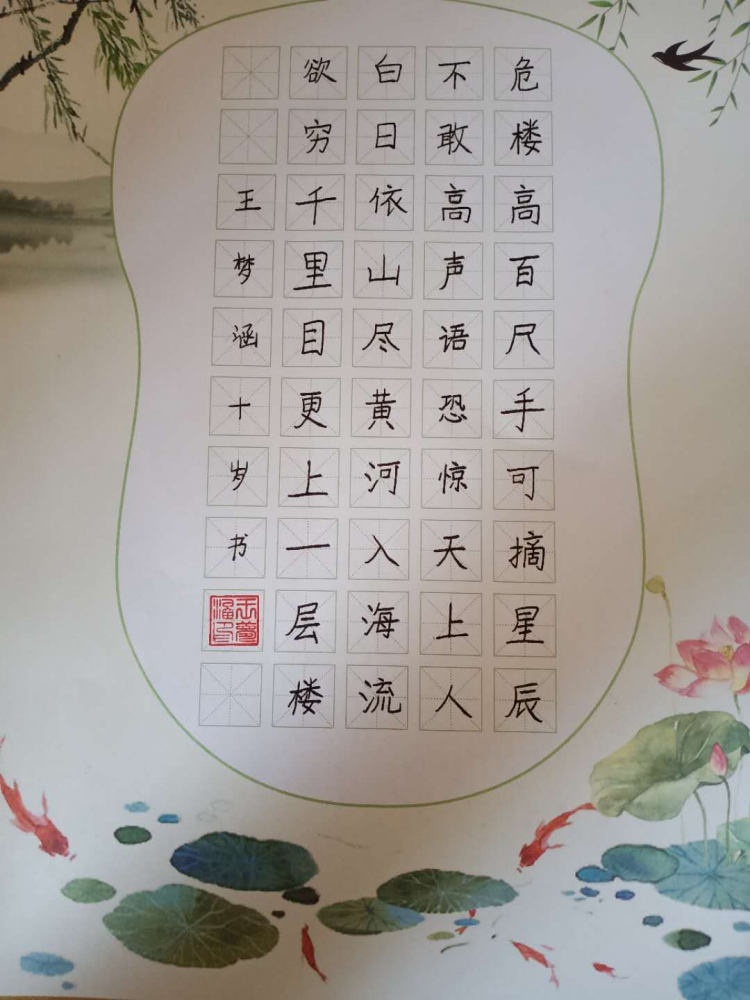 危楼高百尺手可摘星辰
不敢高声语恐惊天上人
白日依山尽黄河入海流
欲穷千里目更上一层楼
王梦涵十岁书